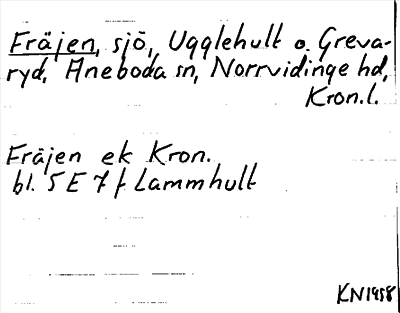 Fräjen, sjö, Ugglehult o. Greva-
ryd, Aneboda sn, Norrvidinge hd,
Kron.l.
Fräjen ek Kron.
bl. 5 E 7 f Lammhult
KN1958